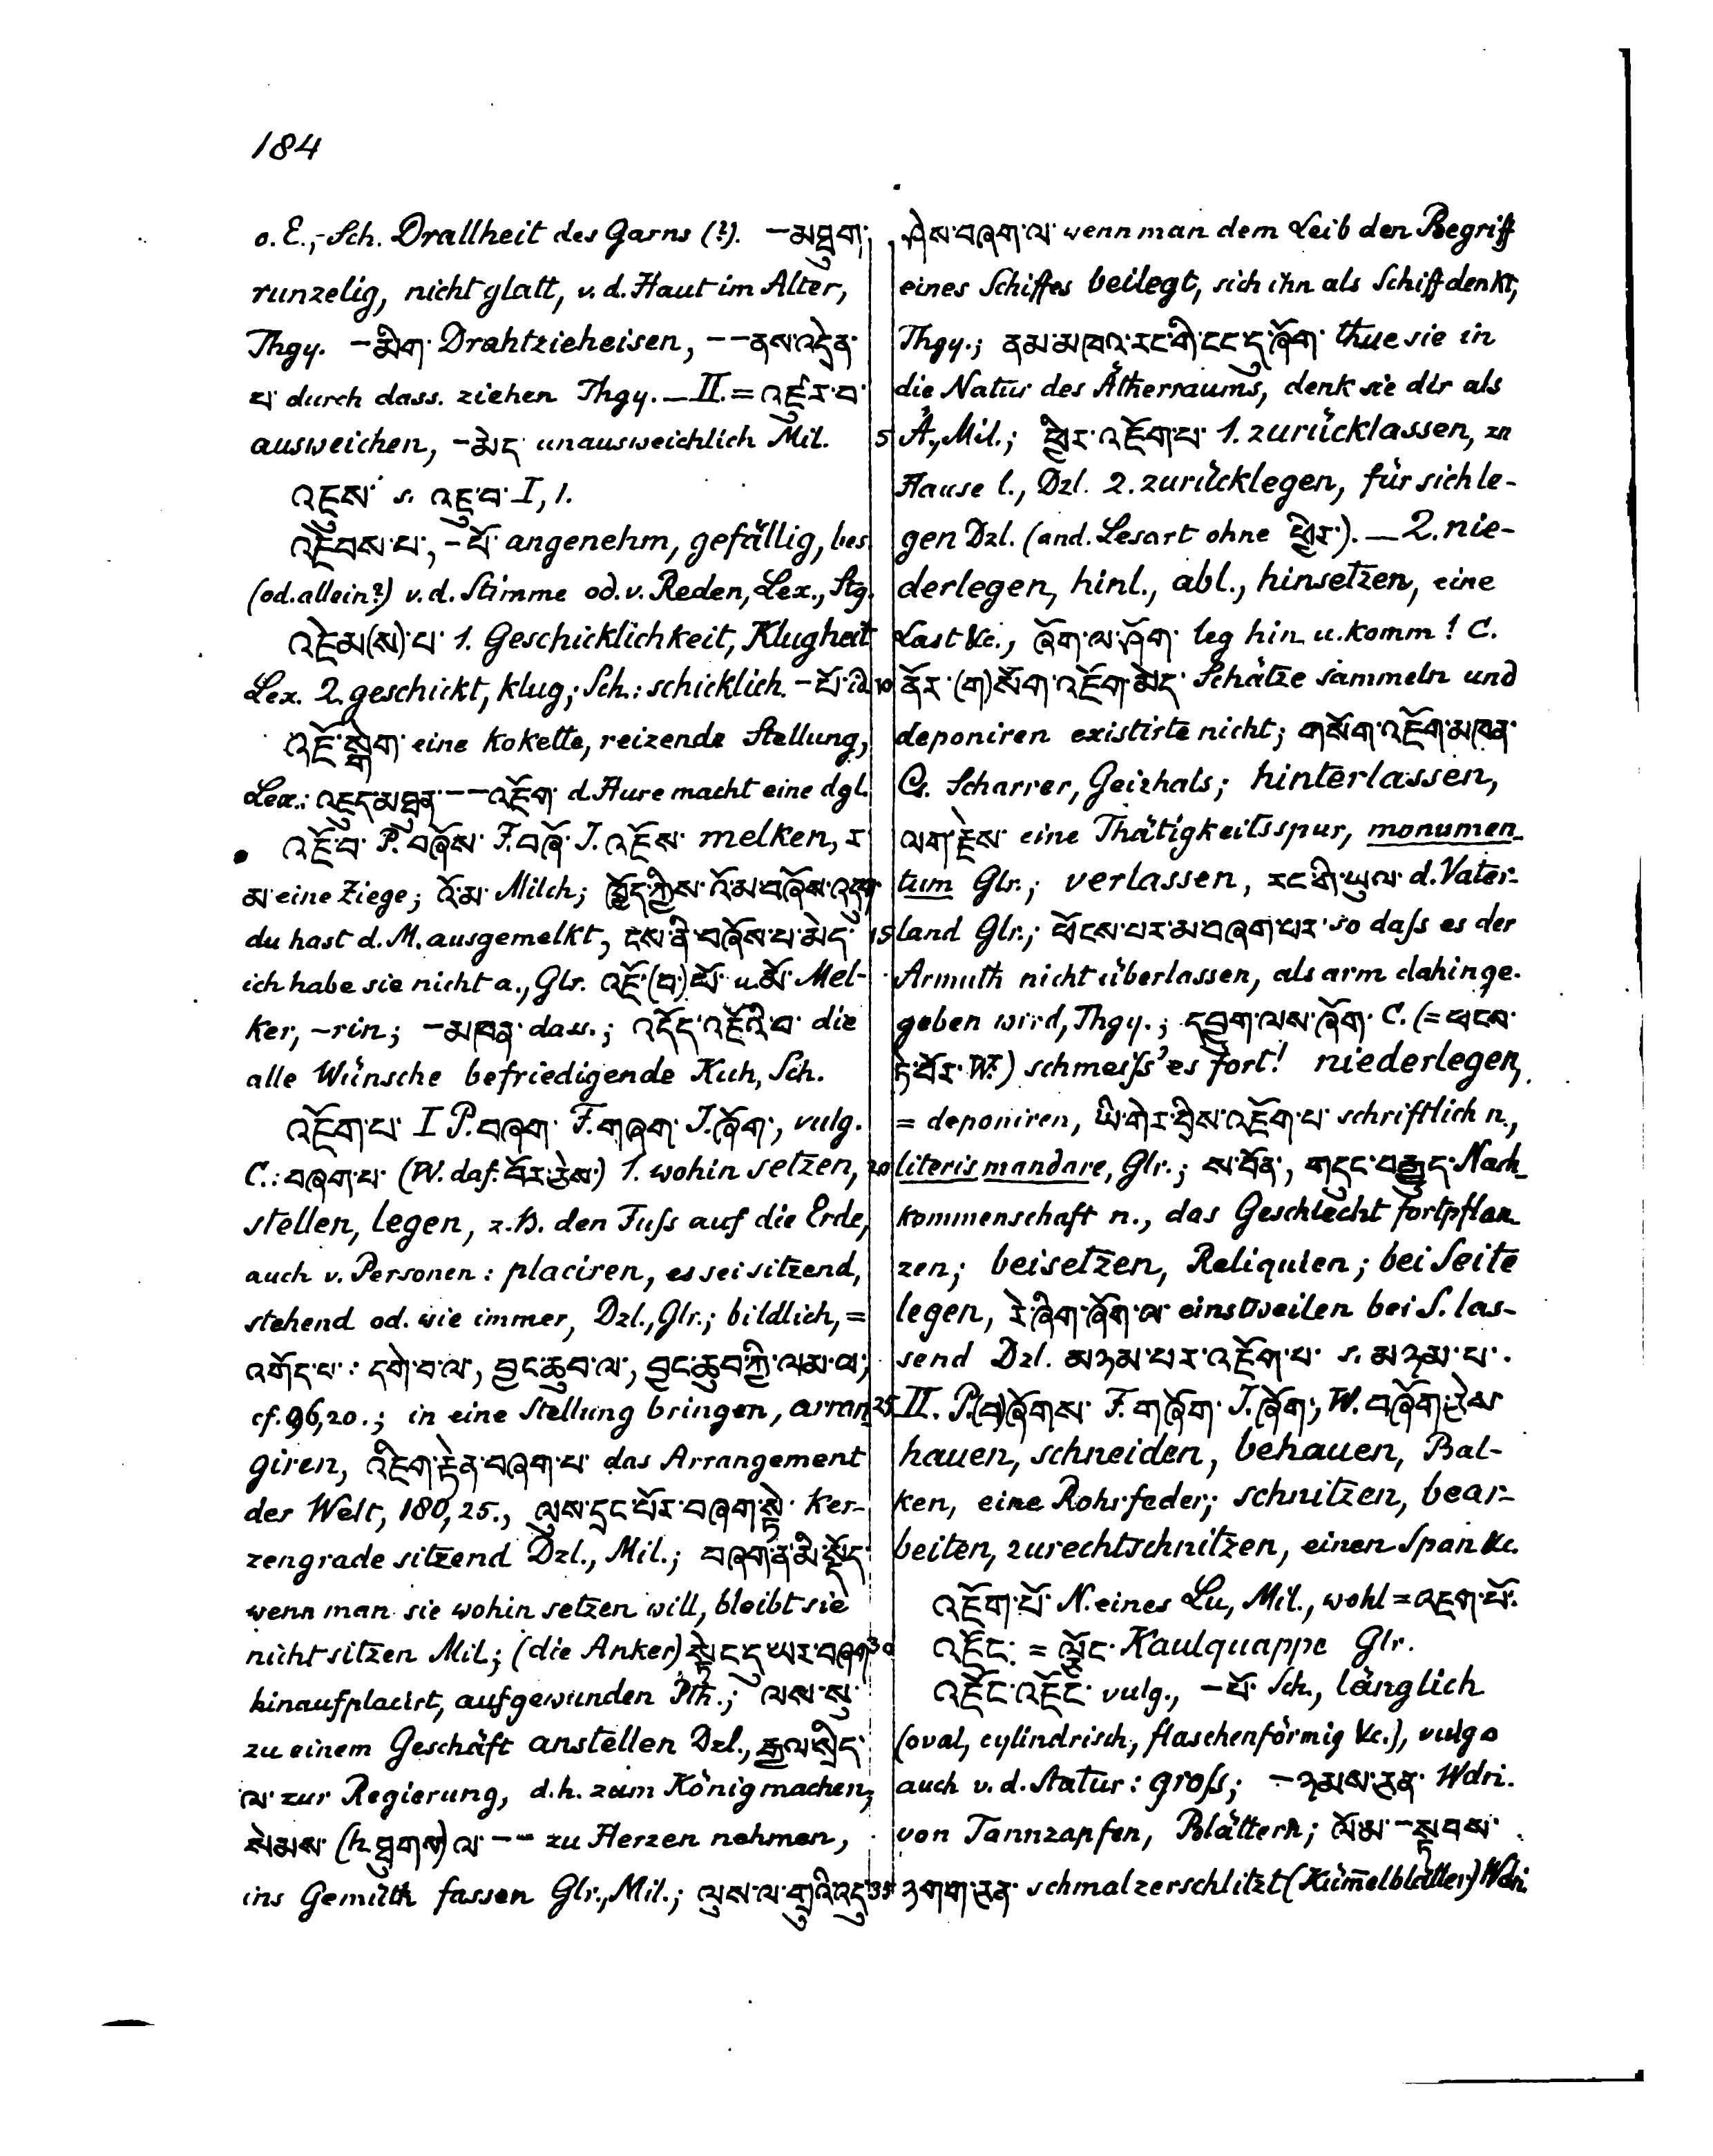 184
o. E.,-Sch. Drallheit des Garns (?). –མཐུག་,
runzelig, nicht glatt, v. d. Haut im Alter,
Thgy. –མིག་ Drahtzieheisen, ––ནས་འདྲེན་
པ་ durch dass. ziehen Thgy. — II. = འཛུར་བ་
ausweichen, –མེད་ unausweichlich Mil.
འཇུས་ s. འཇུ་བ་ I, 1.
འཇེབས་པ་, –པོ་ angenehm, gefällig, bes.
(od. allein?) v. d. Stimme od. v. Reden, Lex., Stg.
འཛེམ(ས)་པ་ 1. Geschicklichkeit, Klugheit
Lex. 2. geschickt, klug; Sch.: schicklich. –པོ་ id.
འཇོ་སྒེག་ eine kokette, reizende Stellung,
Lex.: –––འཇོག་ d. Hure macht eine dgl.
འཇོ་བ་ P. བཞོས་ F. བཞོ་ I. འཇོས་ melken, ར་
མ་ eine Ziege; འོ་མ་ Milch; ཁྱོད་ཀྱིས་འོ་མ་བཞོས་འདུག་
du hast d. M. ausgemelkt, ངས་ནི་བཞོས་པ་མེད་
ich habe sie nicht a., Glr. འཇོ་(བ་)པོ་ u. མོ་ Mel-
ker, –rin; –མཁན་ dass.; འདོད་འཇོའི་བ་ die
alle Wünsche befriedigende Kuh, Sch.
འཇོག་པ་ I P. བཞག་ F. གཞག་ I. ཞོག་, vulg.
C.: བཞག་པ་ (W. daf. བོར་ཅེས་) 1. wohin setzen,
stellen, legen, z. B. den Fuss auf die Erde,
auch v. Personen: placiren, es sei sitzend,
stehend od. wie immer, Dzl., Glr.; bildlich, =
འགོད་པ་: དགེ་བ་ལ་, བྱང་ཆུབ་ལ་, བྱང་ཆུབ་ཀྱི་ལམ་ལ་,
cf. 96,20.; in eine Stellung bringen, arran-
giren, འཇིག་རྟེན་བཞག་པ་ das Arrangement
der Welt, 180,25., ལུས་དྲང་པོར་བཞག་སྟེ་ ker-
zengrade sitzend Dzl., Mil.; བཞག་ན་མི་སྡོད་
wenn man sie wohin setzen will, bleibt sie
nicht sitzen Mil; (die Anker) སྟེང་དུ་ཡར་བཞག་
hinaufplacirt, aufgewunden Pth.; ལས་སུ་
zu einem Geschäft anstellen Dzl., རྒྱལ་སྲིད་
ལ་ zur Regierung, d. h. zum König machen,
སེམས་ (h. ཐུགས་) ལ་ –– zu Herzen nehmen,
ins Gemüth fassen Glr., Mil.; ལུས་ལ་གྲུའི་འདུ་
ཤེས་བཞག་ལ་ wenn man dem Leib den Begriff
eines Schiffes beilegt, sich ihn als Schiff denkt,
Thgy.; ནམ་མཁའ་རང་གི་ངང་དུ་ཞོག་ thue sie in
die Natur des Ätherraums, denk sie dir als
5 Ä., Mil.; ཕྱིར་འཇོག་པ་ 1. zurücklassen, zu
Hause l., Dzl. 2. zurücklegen, für sich le-
gen Dzl. (and. Lesart ohne ཕྱིར་). — 2. nie-
derlegen, hinl., abl., hinsetzen, eine
Last &c., ཞོག་ལ་ཤོག་ leg hin u. komm! C.
10 ནོར་(ག)སོག་འཇོག་མེད་ Schätze sammeln und
deponiren existirte nicht; གསོག་འཇོག་མཁན་
Cs. Scharrer, Geizhals; hinterlassen,
ལག་རྗེས་ eine Thätigkeitsspur, monumen-
tum Glr.; verlassen, རང་གི་ཡུལ་ d. Vater-
15 land Glr.; ཕོངས་པར་མ་བཞག་པར་ so dass es der
Armuth nicht überlassen, als arm dahinge-
geben wird, Thgy.; དབྱུག་ལས་ཞོག་ C. (= ཕངས་
ཏེ་བོར་ W.) schmeiss' es fort! niederlegen,
= deponiren, ཡི་གེར་བྲིས་འཇོག་པ་ schriftlich n.,
20 literis mandare, Glr.; ས་བོན་, གདུང་བརྒྱུད་ Nach-
kommenschaft n., das Geschlecht fortpflan-
zen; beisetzen, Reliquien; bei Seite
legen, རེ་ཞིག་ཞོག་ལ་ einstweilen bei S. las-
send Dzl. མཉམ་པར་འཇོག་པ་ s. མཉམ་པ་.
25 II. P. (བ)ཞོགས་ F. གཞོག་ I. ཞོག་, W. བཞོག་ཅེས་
hauen, schneiden, behauen, Bal-
ken, eine Rohrfeder; schnitzen, bear-
beiten, zurechtschnitzen, einen Span &c.
འཇོག་པོ་ N. eines Lu, Mil., wohl = འཇག་པོ་.
30 འཇོང་ = ལྕོང་ Kaulquappe Glr.
འཇོང་འཇོང་ vulg., –པོ་ Sch., länglich
(oval, cylindrisch, flaschenförmig &c.), vulgo
auch v. d. Statur: gross; –ཉམས་ཅན་ Wdn.
von Tannzapfen, Blättern; ལོ་མ་–སྟབས་
35 ཉག་ག་ཅན་ schmal zerschlitzt (Kümelblätter) Wdn.